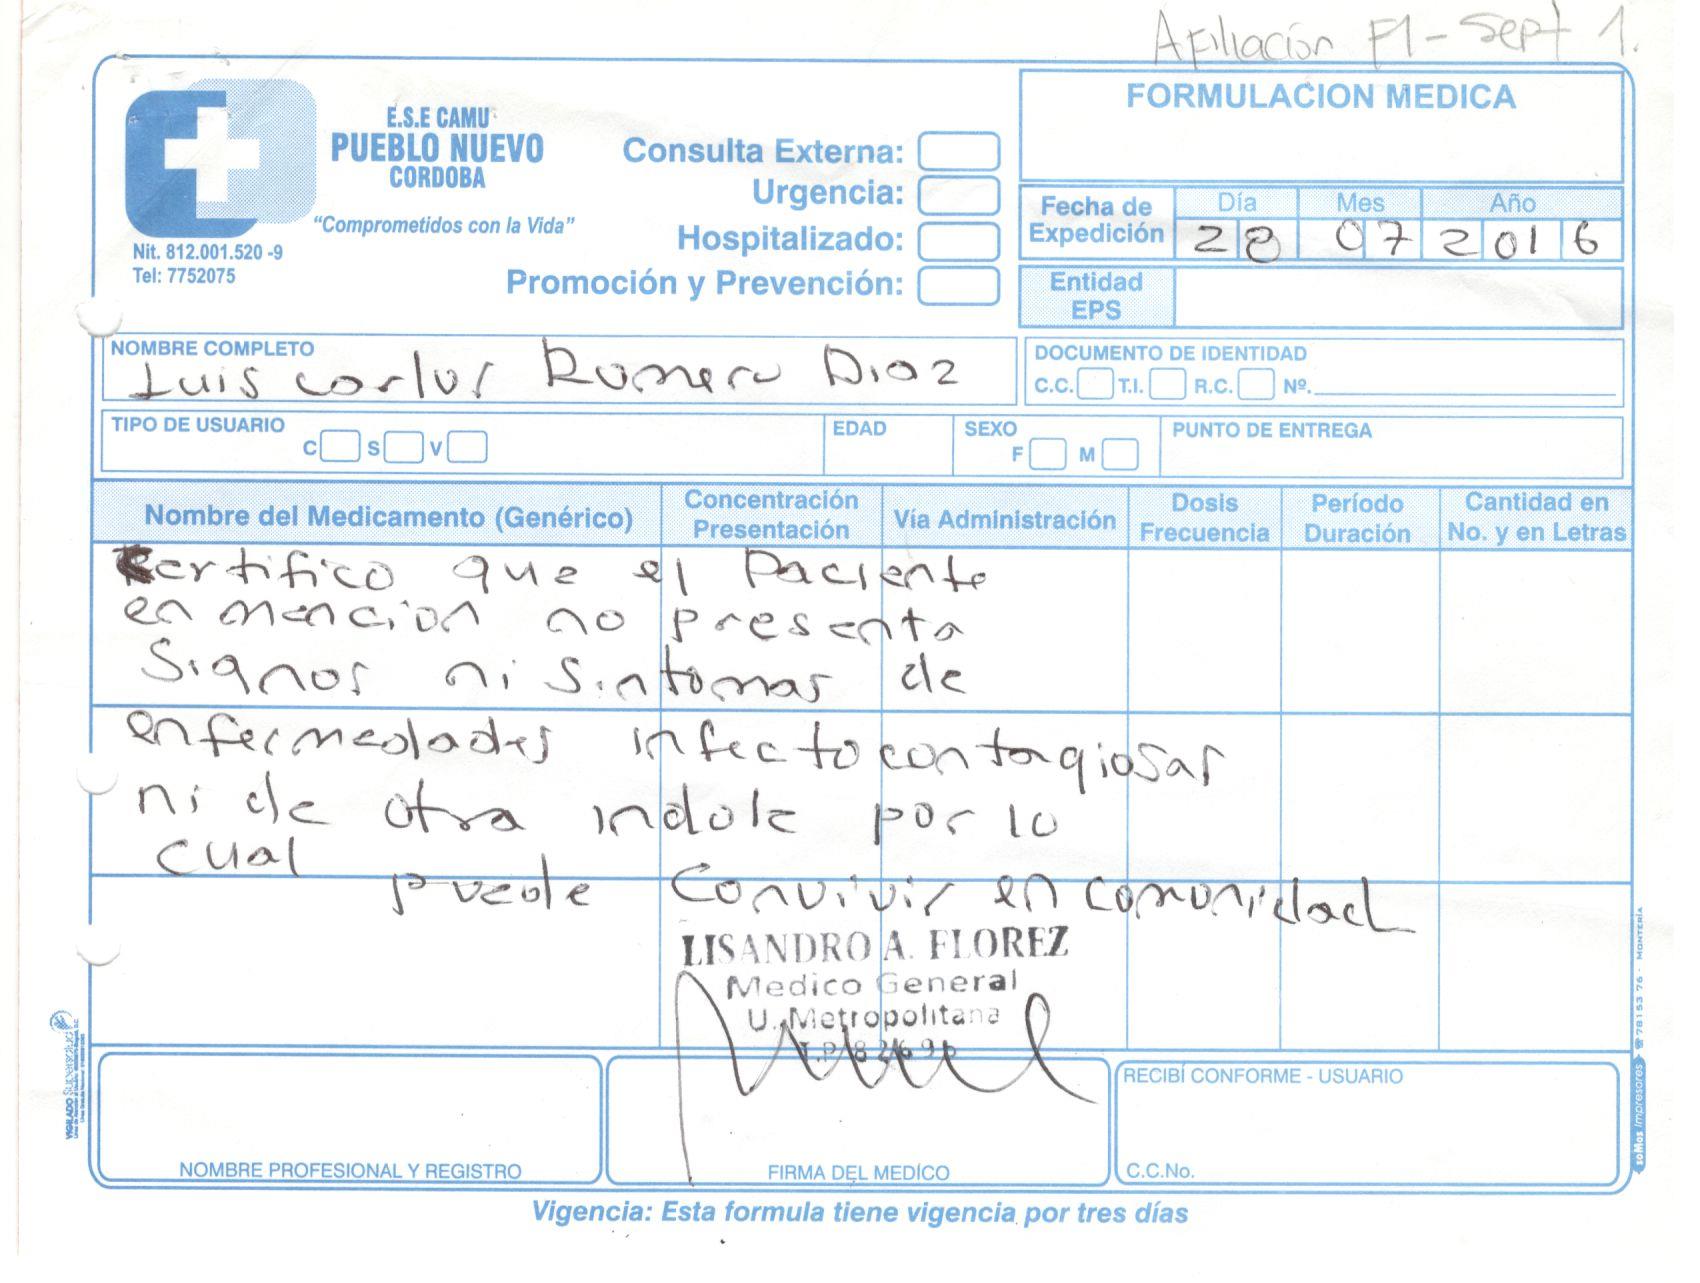 Afiliación F1 - Sept 1.
FORMULACION MEDICA
E.S.E CAMU
PUEBLO NUEVO
CORDOBA
"Comprometidos con la Vida"
Nit. 812.001.520 -9
Tel: 7752075
Consulta Externa:
Urgencia:
Hospitalizado:
Promoción y Prevención:
Fecha de Expedición Día Mes Año
28 07 2016
Entidad
EPS
NOMBRE COMPLETO
Luis Carlos Romero Diaz
DOCUMENTO DE IDENTIDAD
C.C. T.I. R.C. Nº.
TIPO DE USUARIO C S V EDAD SEXO F M PUNTO DE ENTREGA
Nombre del Medicamento (Genérico) Concentración Presentación Vía Administración Dosis Frecuencia Período Duración Cantidad en No. y en Letras
Certifico que el Paciente
en mencion no presenta
Signos ni Sintomas de
enfermedades infectocontagiosas
ni de otra indole por lo
cual
puede Convivir en comunidad
LISANDRO A. FLOREZ
Medico General
U. Metropolitana
NOMBRE PROFESIONAL Y REGISTRO
FIRMA DEL MEDÍCO
RECIBÍ CONFORME - USUARIO
C.C.No.
Vigencia: Esta formula tiene vigencia por tres días
VIGILADO Supersalud
soMos Impresores ☎ 78153 76 - MONTERÍA